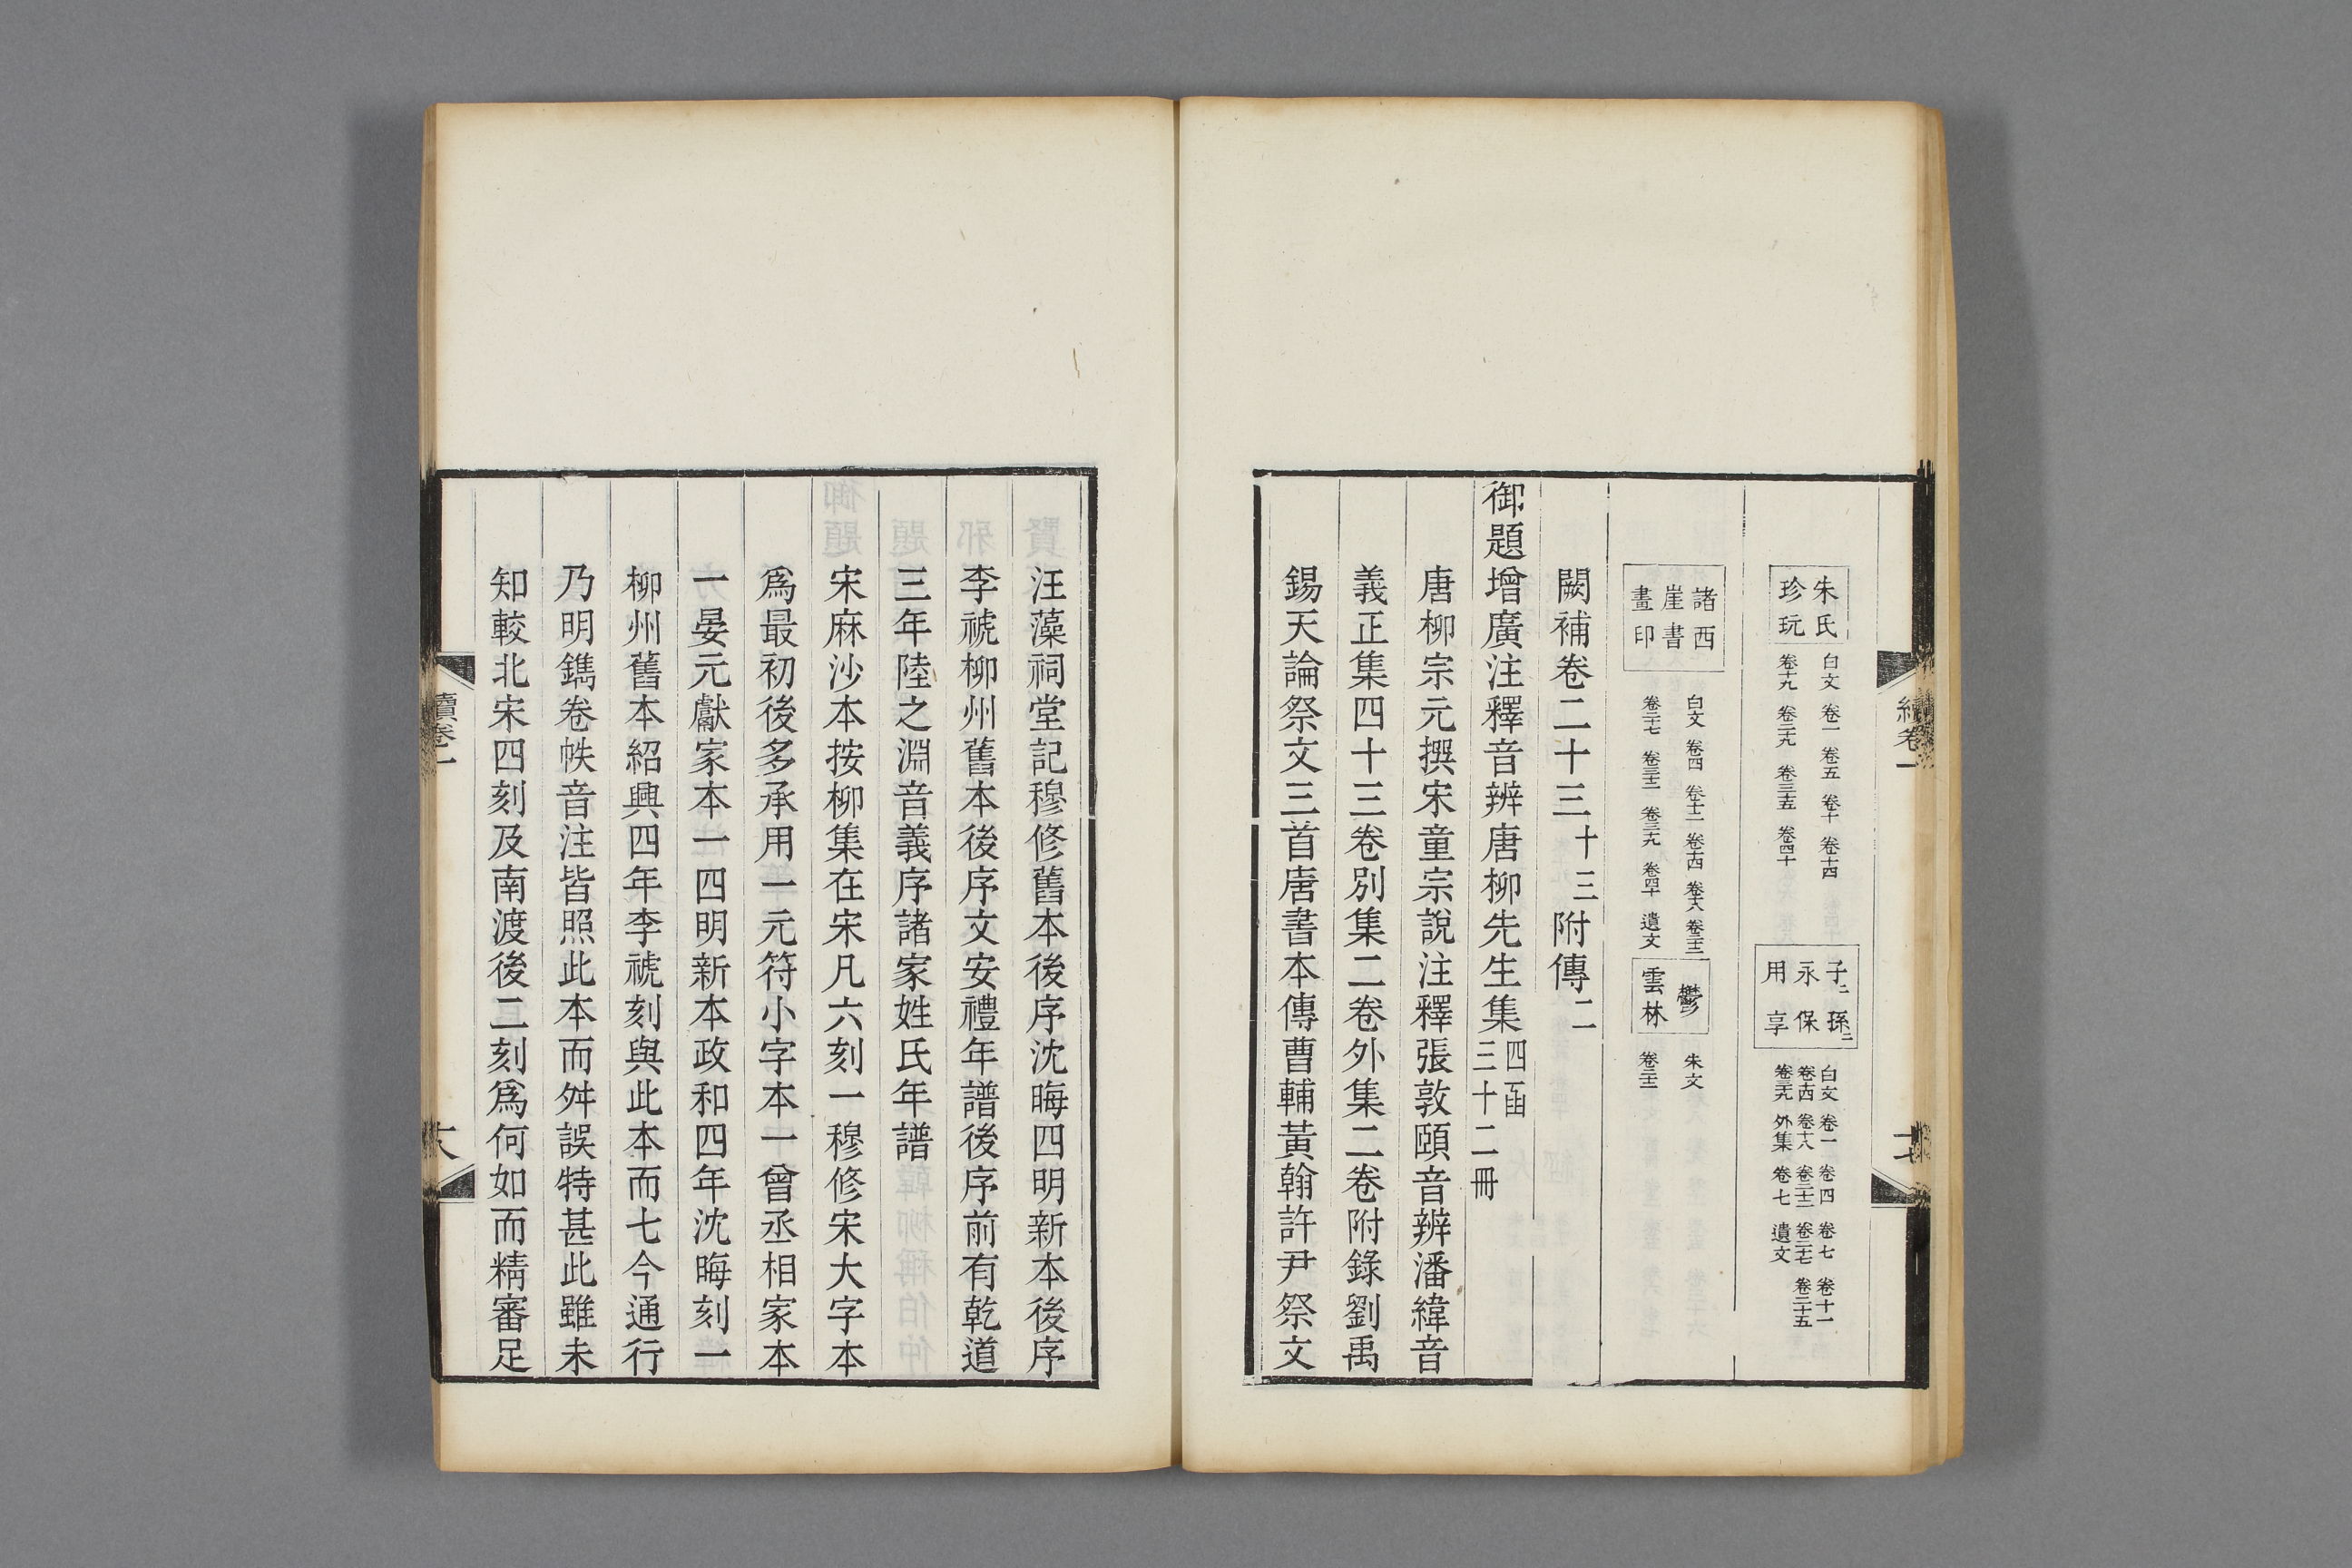 朱氏
珍玩
白文 卷一 卷五 卷十 卷十四
卷十九 卷二九 卷三五 卷四十
子二孫二
永保
用享
白文 卷一 卷四 卷七 卷十一
卷十四 卷十八 卷二十二 卷二十七 卷三十五
卷三十九 外集 卷七 遺文
諸西
崖書
畫印
白文 卷四 卷十二 卷十四 卷十六 卷二十三
卷二十七 卷三十二 卷三十九 卷四十 遺文
鬱
雲林
朱文
卷三十三
闕補卷二十三十三附傳二
御題增廣注釋音辨唐柳先生集四函
三十二冊
唐柳宗元撰宋童宗說注釋張敦頤音辨潘緯音
義正集四十三卷別集二卷外集二卷附錄劉禹
錫天論祭文三首唐書本傳曹輔黃翰許尹祭文
續卷一
十七
汪藻祠堂記穆修舊本後序沈晦四明新本後序
李褫柳州舊本後序文安禮年譜後序前有乾道
三年陸之淵音義序諸家姓氏年譜
宋麻沙本按柳集在宋凡六刻一穆修宋大字本
爲最初後多承用一元符小字本一曾丞相家本
一晏元獻家本一四明新本政和四年沈晦刻一
柳州舊本紹興四年李褫刻與此本而七今通行
乃明鐫卷帙音注皆照此本而舛誤特甚此雖未
知較北宋四刻及南渡後二刻爲何如而精審足
續卷一
十八